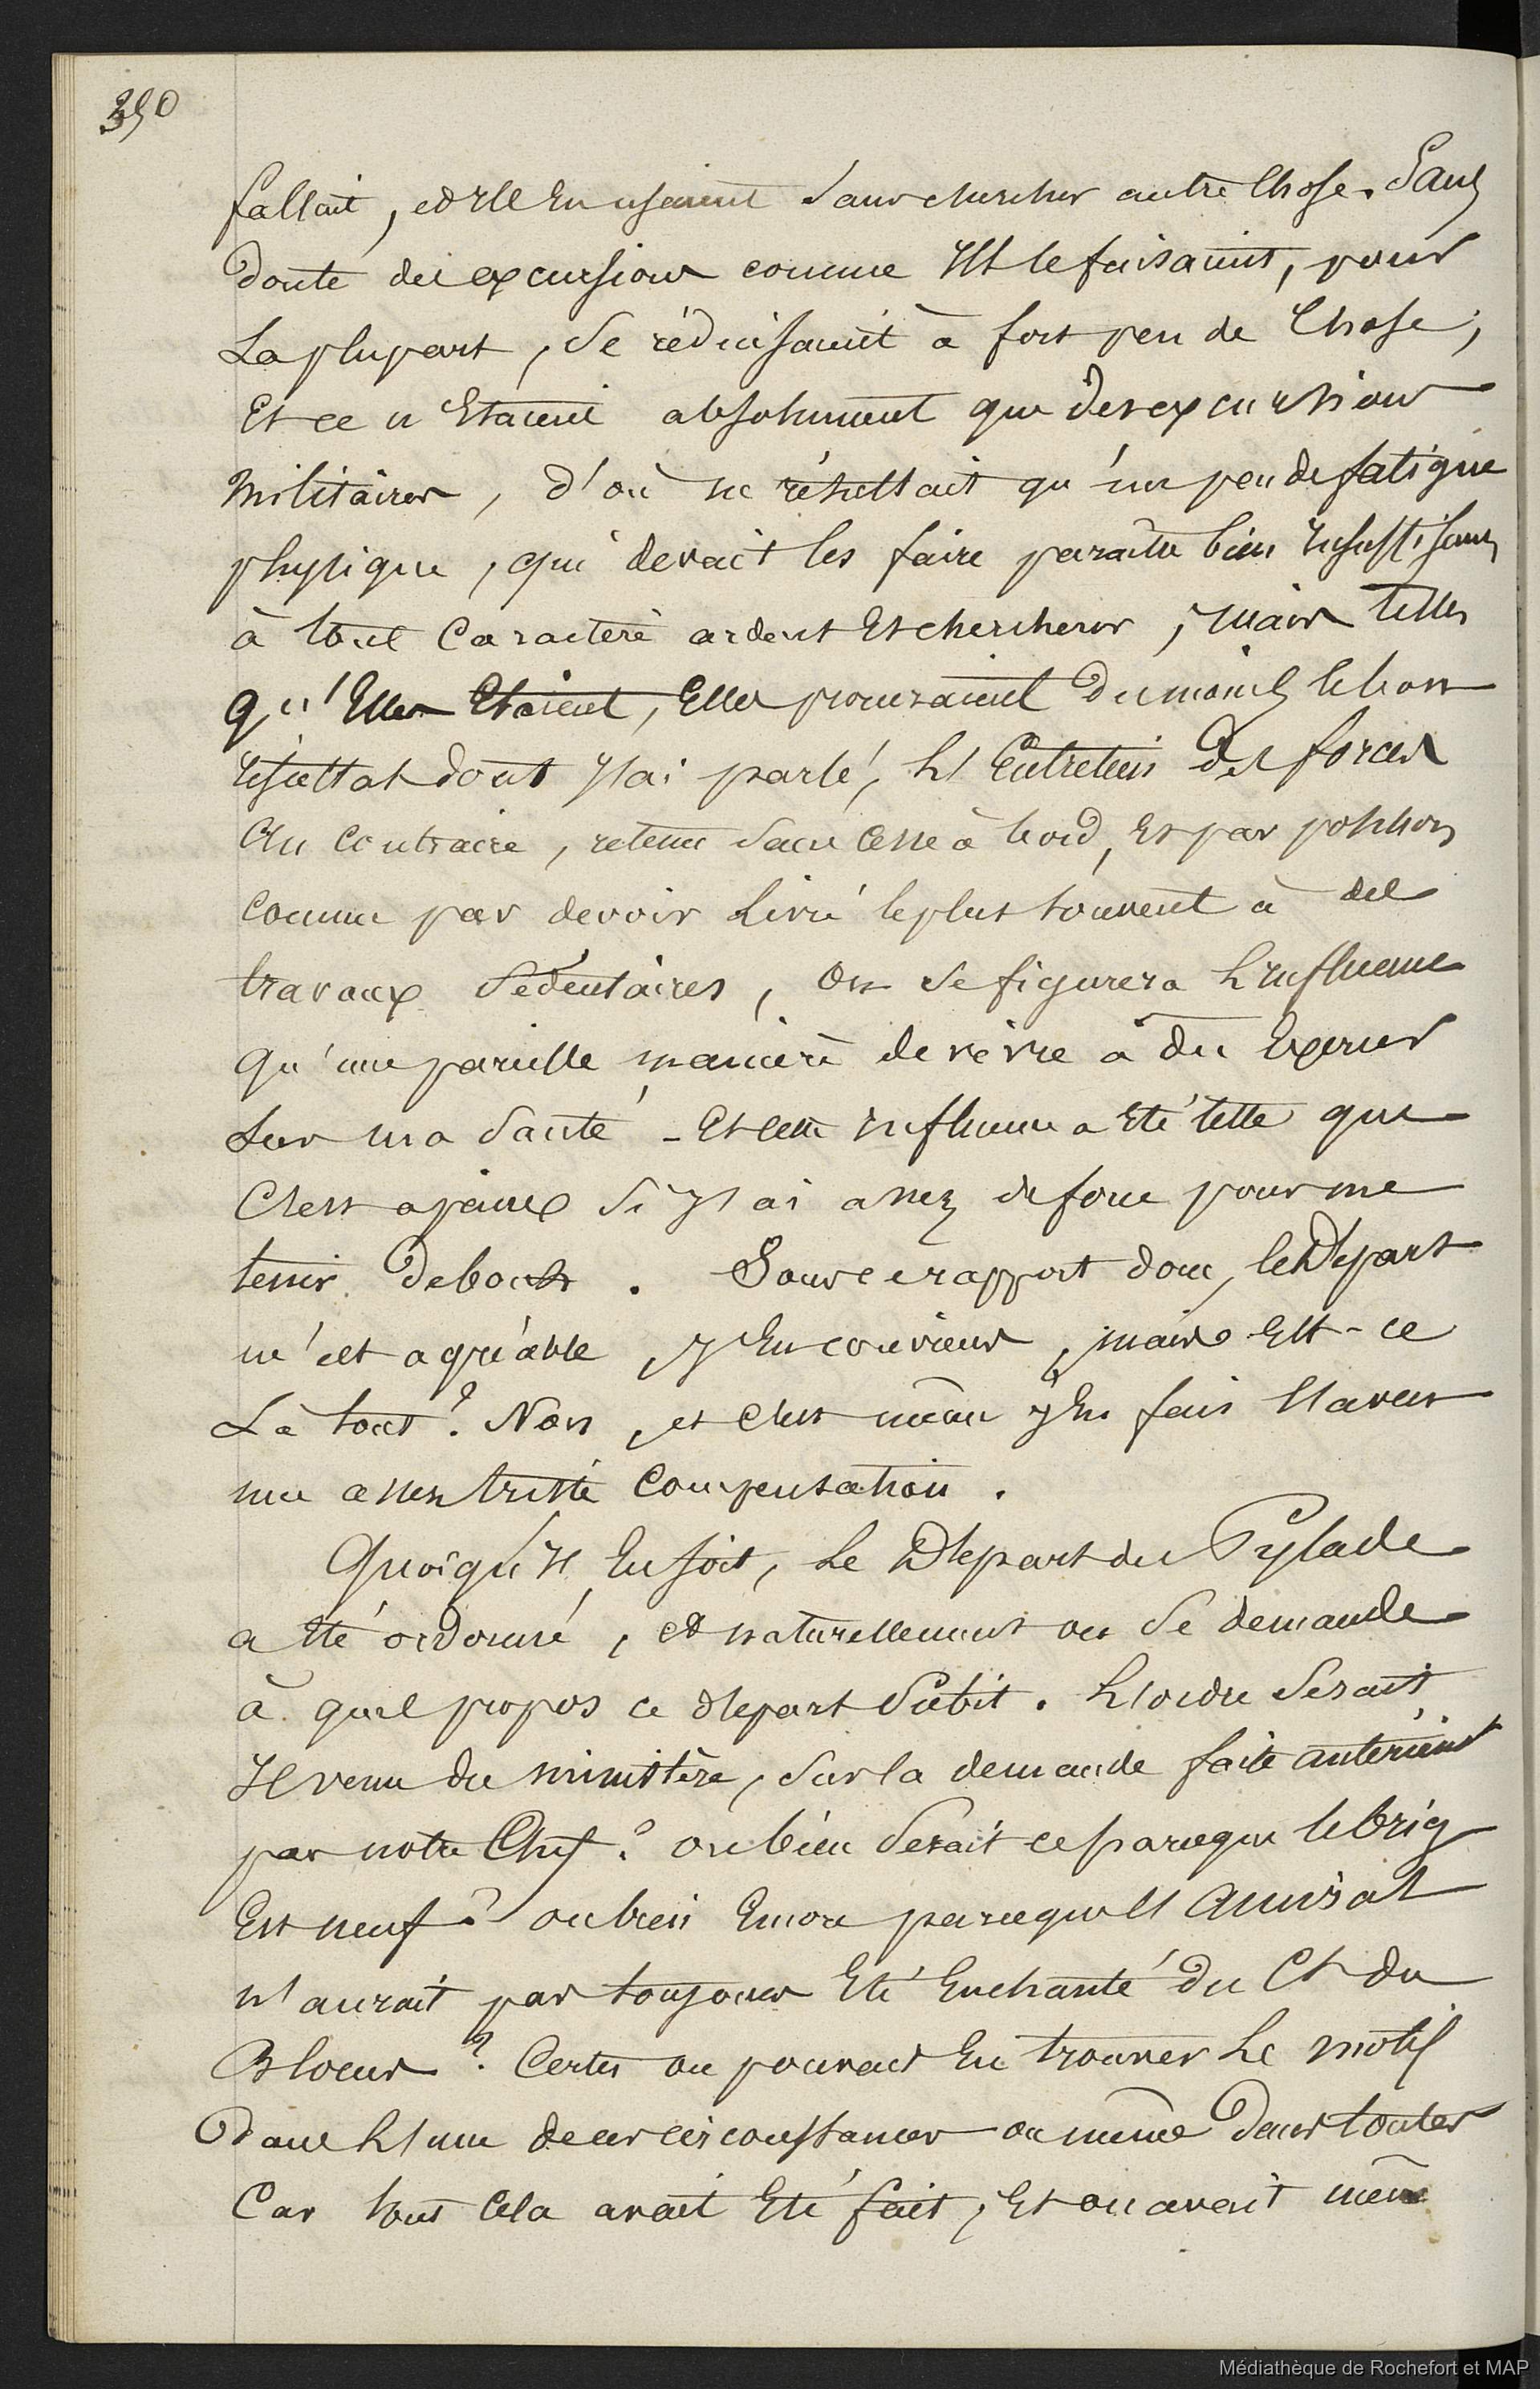 350
fallait, et Ils En usaient Sans chercher autre Chose. Sans
Doute des excursions comme Ils le faisaient, pour
La plupart, Se réduisaient à fort peu de Chose,
Et ce n'Etaient absolument que Des excursions
Militaires, d'où ne résultait qu'un peu de fatigue
physique, qui devait les faire paraitre bien Insuffisans
à tout Caractère ardent Et chercheur, mais telles
qu'Elles Etaient, Elles procuraient Du moins le bon
résultat dont J'ai parlé, L'Entretien Des forces
Au Contraire, retenu Sans Cesse à bord, Et par position
Comme par devoir Livré le plus souvent à des
travaux Sédentaires, On Se figurera L'Influence
qu'une pareille manière de vivre a du Exercer
Sur ma Santé - Et cette Influence a Eté telle que
C'est a peine Si J'ai assez de force pour me
tenir Debout. Sous ce rapport donc, le Départ
m'est agréable, J'En conviens, mais Est-ce
Là tout? Non, et C'est même J'En fais l'aveu
une assez triste Compensation.
Quoiqu'Il En soit, Le Départ du Pylade
a Eté ordonné, et naturellement on Se demande
à quel propos ce départ Subit. L'ordre Serait
Il venu du ministère, Sur la demande faite antérieurt
par notre Chef? ou bien Serait ce parceque le brig
Est neuf? ou bien Encore parceque l'Amiral
n'aurait pas toujours Eté Enchanté du Ct du
Blocus? Certes on pouvait En trouver Le motif
Dans L'une de ces circonstances ou même Dans toutes
Car tout Cela avait Eté fait, Et on avait même
Médiathèque de Rochefort et MAP